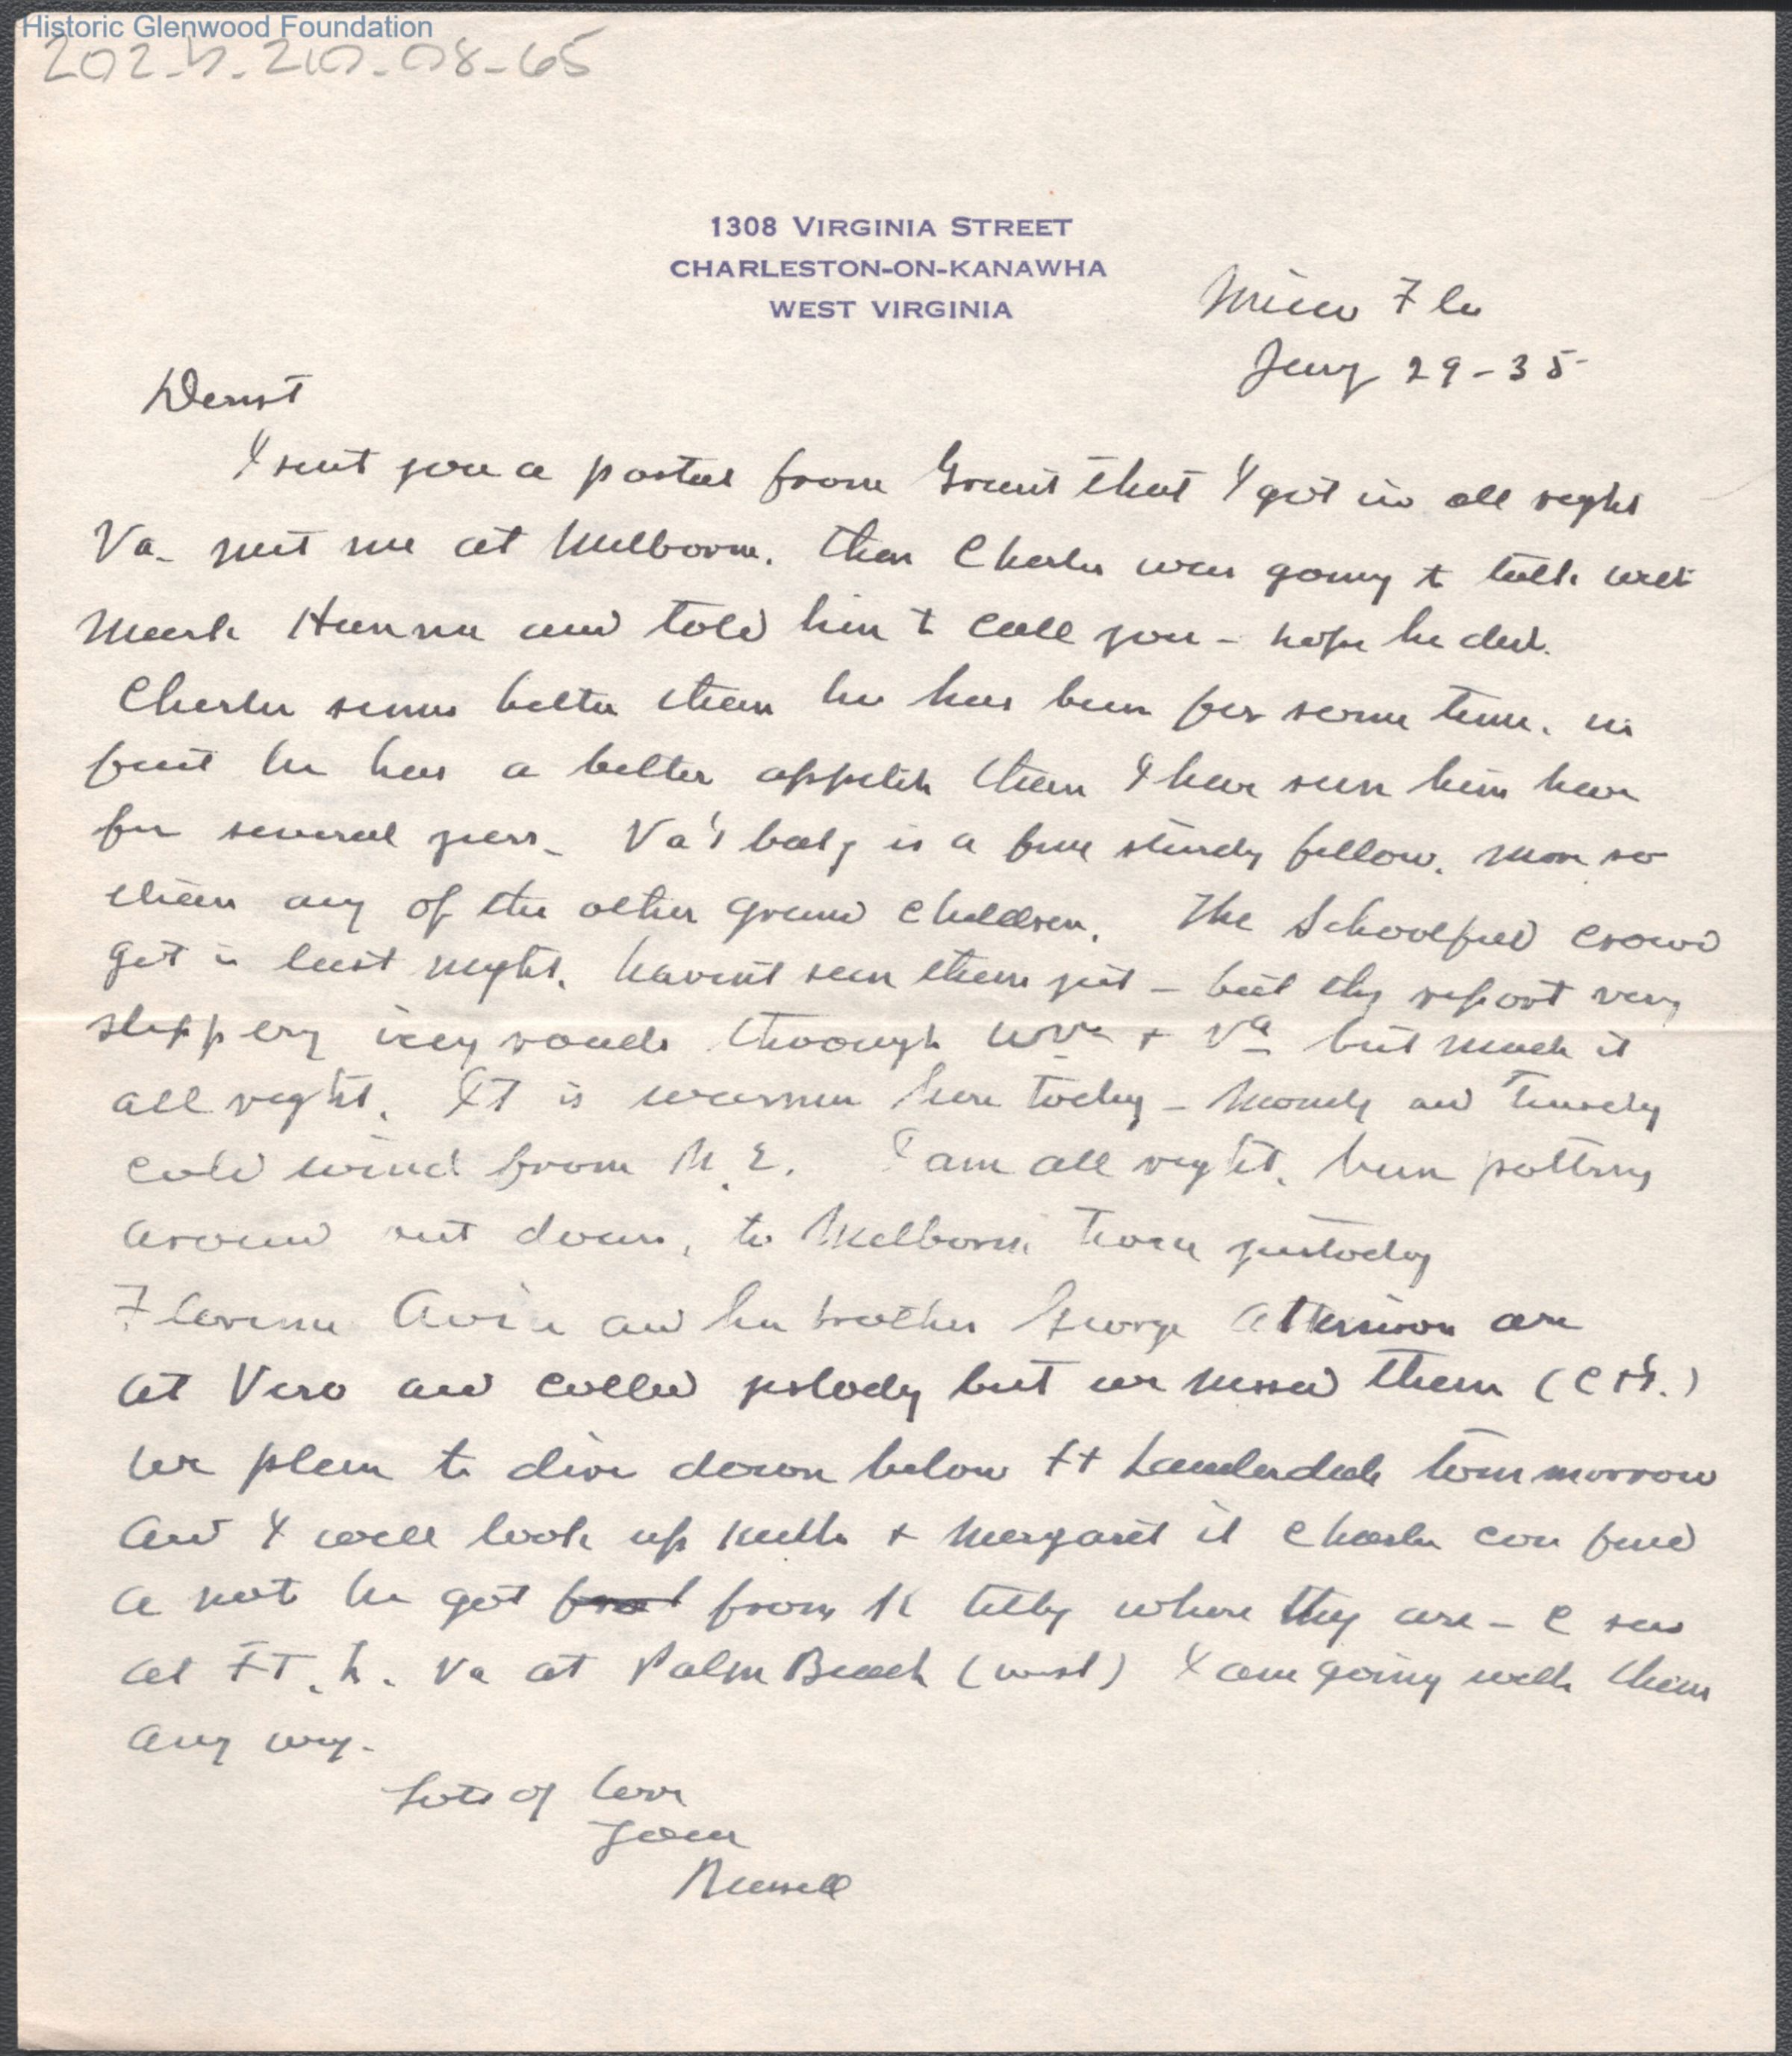 Historic Glenwood Foundation
202-4.210.08-65
1308 VIRGINIA STREET
CHARLESTON-ON-KANAWHA
WEST VIRGINIA
Micco Fla
Jany 29-35
Dearest
I sent you a postal from Grant that I got in all right
Va. met me at Melborne. Then Charles was going to talk with
Mark Hanna and told him to call you - hope he did.
Charles seems better than he has been for some time. in
fact he has a better appetite than I have seen him have
for several years. Va's baby is a fine sturdy fellow. more so
than any of the other grand children. The Schoolfield crowd
got in last night. havent seen them yet - but they report very
slippery icey roads through WVa + Va but made it
all right. It is warmer here today - Monday and Tuesday
cold wind from N.E. I am all right. been pottering
around sit down, to Melborne town yestoday
Florence and her brother George Atkinson are
at Vero and called yestody but we missed them (C + I.)
We plan to drive down below Ft Lauderdale tommorrow
and I will look up Keith + Margaret if Charles can find
a note he got from K telling where they are - C says
at FT. L. Va at Palm Beach (west) I am going with them
any way.
Lots of love
Your
Russell